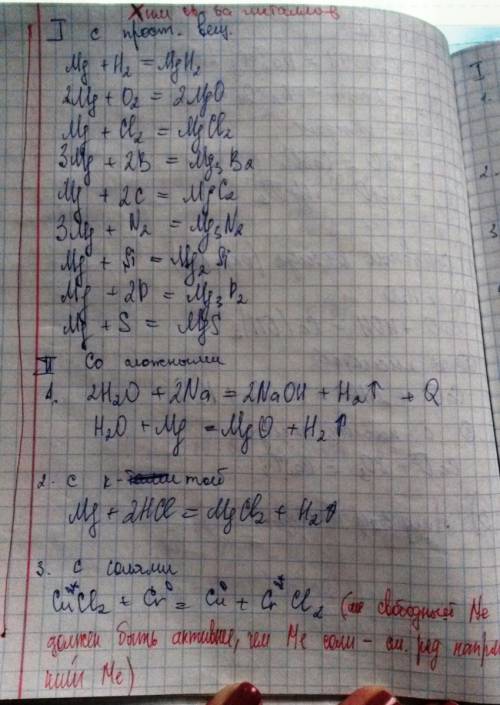 Хим св-ва металлов
I с прост. вещ.
Mg + H₂ = MgH₂
2Mg + O₂ = 2MgO
Mg + Cl₂ = MgCl₂
3Mg + 2B = Mg₃B₂
Mg + 2C = MgC₂
3Mg + N₂ = Mg₃N₂
Mg + Si = Mg₂Si
Mg + 2P = Mg₃P₂
Mg + S = MgS
II Со сложными
1. 2H₂O + 2Na = 2NaOH + H₂↑ + Q
H₂O + Mg = MgO + H₂↑
2. с к-той
Mg + 2HCl = MgCl₂ + H₂↑
3. с солями
CuCl₂ + Cr⁰ = Cu⁰ + CrCl₂ (свободный Me
должен быть активнее, чем Me соли - см. ряд напря
ний Me)
I
1.
2.
3